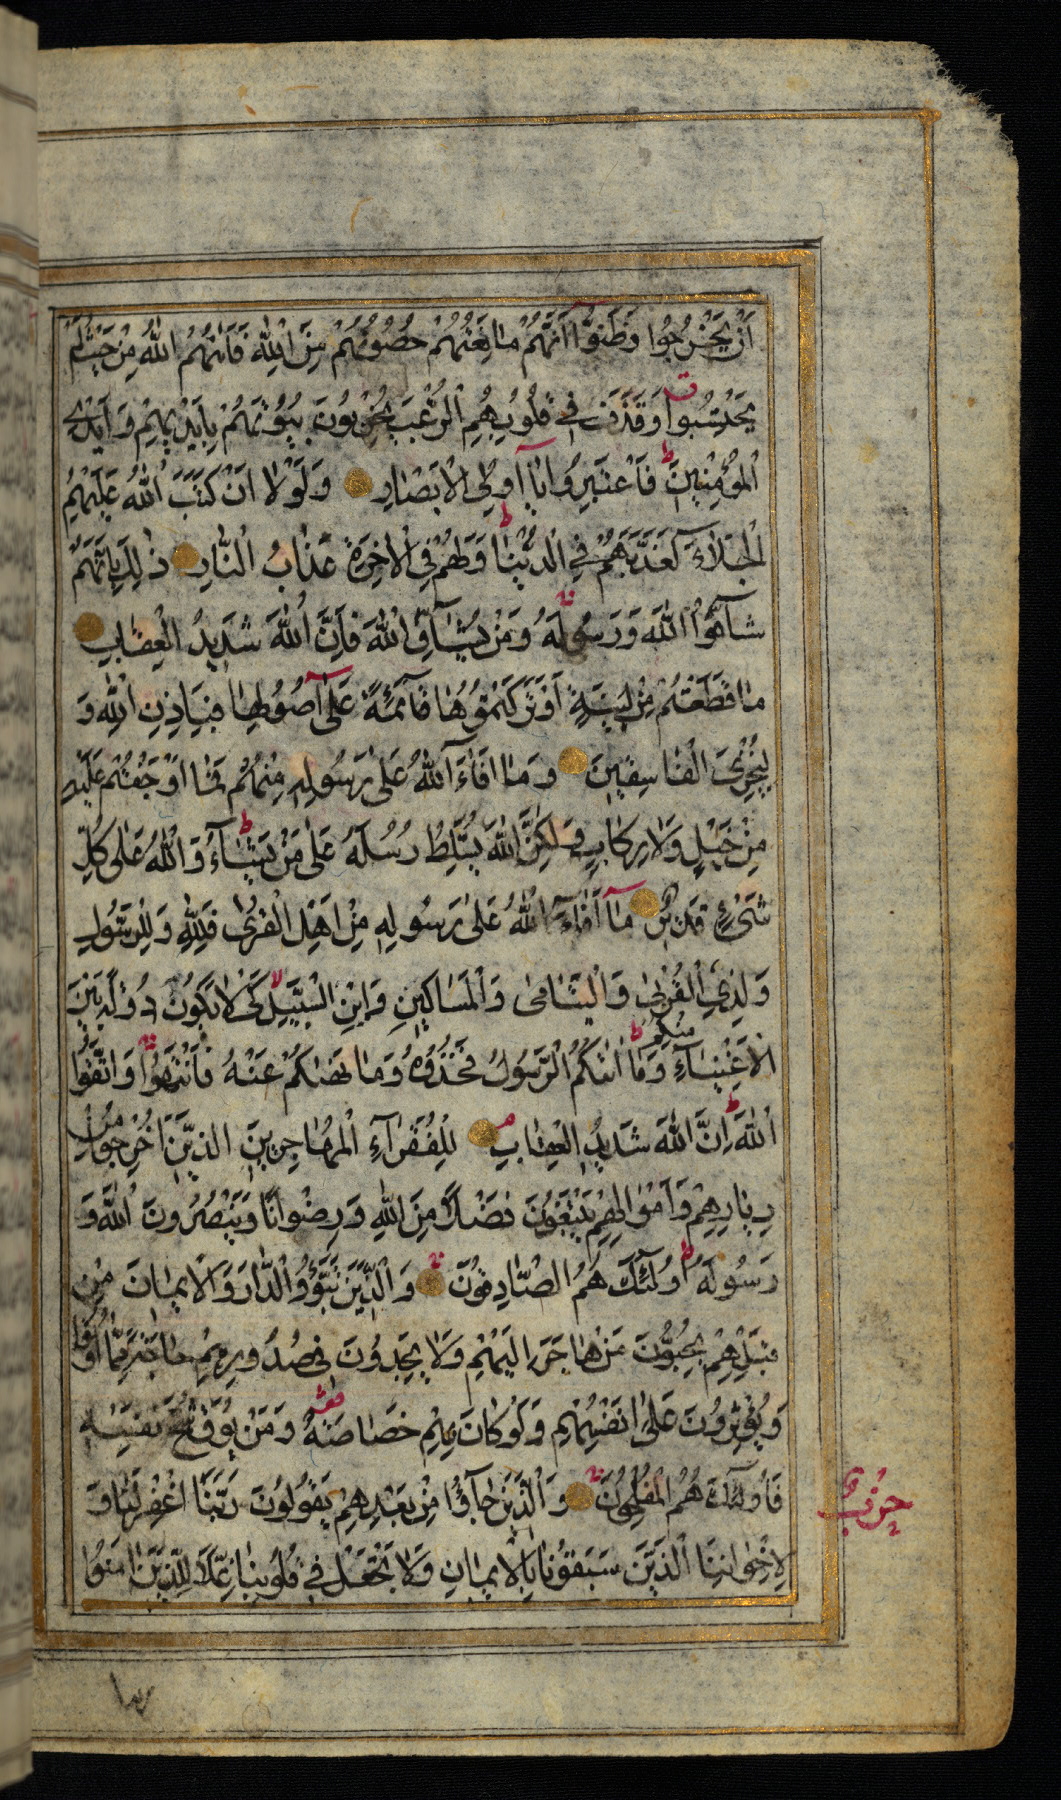 اَنْ يَخْرُجُوا وَظَنُّوا اَنَّهُمْ مٰانِعَتُهُمْ حُصُونُهُمْ مِنَ اللّٰهِ فَاَتٰهُمُ اللّٰهُ مِنْ حَيْثُ لَمْ
يَحْتَسِبُوا وَقَذَفَ فِي قُلُوبِهِمُ الرُّعْبَ يُخْرِبُونَ بُيُوتَهُمْ بِاَيْدِيهِمْ وَاَيْدِي
الْمُؤْمِنِينَ فَاعْتَبِرُوا يٰٓا اُولِى الْاَبْصٰارِ وَلَوْلٰا اَنْ كَتَبَ اللّٰهُ عَلَيْهِمُ
الْجَلٰاۤءَ لَعَذَّبَهُمْ فِي الدُّنْيٰا وَلَهُمْ فِي الْاٰخِرَةِ عَذٰابُ النّٰارِ ذٰلِكَ بِاَنَّهُمْ
شٰاۤقُّوا اللّٰهَ وَرَسُولَهُ وَمَنْ يُشٰاۤقِّ اللّٰهَ فَاِنَّ اللّٰهَ شَدِيدُ الْعِقٰابِ
مٰا قَطَعْتُمْ مِنْ لِينَةٍ اَوْ تَرَكْتُمُوهٰا قٰاۤئِمَةً عَلٰٓى اُصُولِهٰا فَبِاِذْنِ اللّٰهِ وَ
لِيُخْزِيَ الْفٰاسِقِينَ وَمٰا اَفٰاۤءَ اللّٰهُ عَلٰى رَسُولِهِ مِنْهُمْ فَمٰا اَوْجَفْتُمْ عَلَيْهِ
مِنْ خَيْلٍ وَلٰا رِكٰابٍ وَلٰكِنَّ اللّٰهَ يُسَلِّطُ رُسُلَهُ عَلٰى مَنْ يَشٰاۤءُ وَاللّٰهُ عَلٰى كُلِّ
شَيْءٍ قَدِيرٌ مٰٓا اَفٰاۤءَ اللّٰهُ عَلٰى رَسُولِهِ مِنْ اَهْلِ الْقُرٰى فَلِلّٰهِ وَلِلرَّسُولِ
وَلِذِي الْقُرْبٰى وَالْيَتٰامٰى وَالْمَسٰاكِينِ وَابْنِ السَّبِيلِ كَيْ لٰا يَكُونَ دُولَةً بَيْنَ
الْاَغْنِيٰاۤءِ مِنْكُمْ وَمٰٓا اٰتٰىكُمُ الرَّسُولُ فَخُذُوهُ وَمٰا نَهٰىكُمْ عَنْهُ فَانْتَهُوا وَاتَّقُوا
اللّٰهَ اِنَّ اللّٰهَ شَدِيدُ الْعِقٰابِ لِلْفُقَرٰاۤءِ الْمُهٰاجِرِينَ الَّذِينَ اُخْرِجُوا مِنْ
دِيٰارِهِمْ وَاَمْوٰالِهِمْ يَبْتَغُونَ فَضْلًا مِنَ اللّٰهِ وَرِضْوٰانًا وَيَنْصُرُونَ اللّٰهَ وَ
رَسُولَهُ اُولٰۤئِكَ هُمُ الصّٰادِقُونَ وَالَّذِينَ تَبَوَّؤُ الدّٰارَ وَالْاِيمٰانَ مِنْ
قَبْلِهِمْ يُحِبُّونَ مَنْ هٰاجَرَ اِلَيْهِمْ وَلٰا يَجِدُونَ فِي صُدُورِهِمْ حٰاجَةً مِمّٰٓا اُوتُوا
وَيُؤْثِرُونَ عَلٰٓى اَنْفُسِهِمْ وَلَوْ كٰانَ بِهِمْ خَصٰاصَةٌ وَمَنْ يُوقَ شُحَّ نَفْسِهِ
فَاُولٰۤئِكَ هُمُ الْمُفْلِحُونَ وَالَّذِينَ جٰاۤؤُا مِنْ بَعْدِهِمْ يَقُولُونَ رَبَّنَا اغْفِرْ لَنٰا وَ
حزب
لِاِخْوٰانِنَا الَّذِينَ سَبَقُونٰا بِالْاِيمٰانِ وَلٰا تَجْعَلْ فِي قُلُوبِنٰا غِلًّا لِلَّذِينَ اٰمَنُوا
ربنا